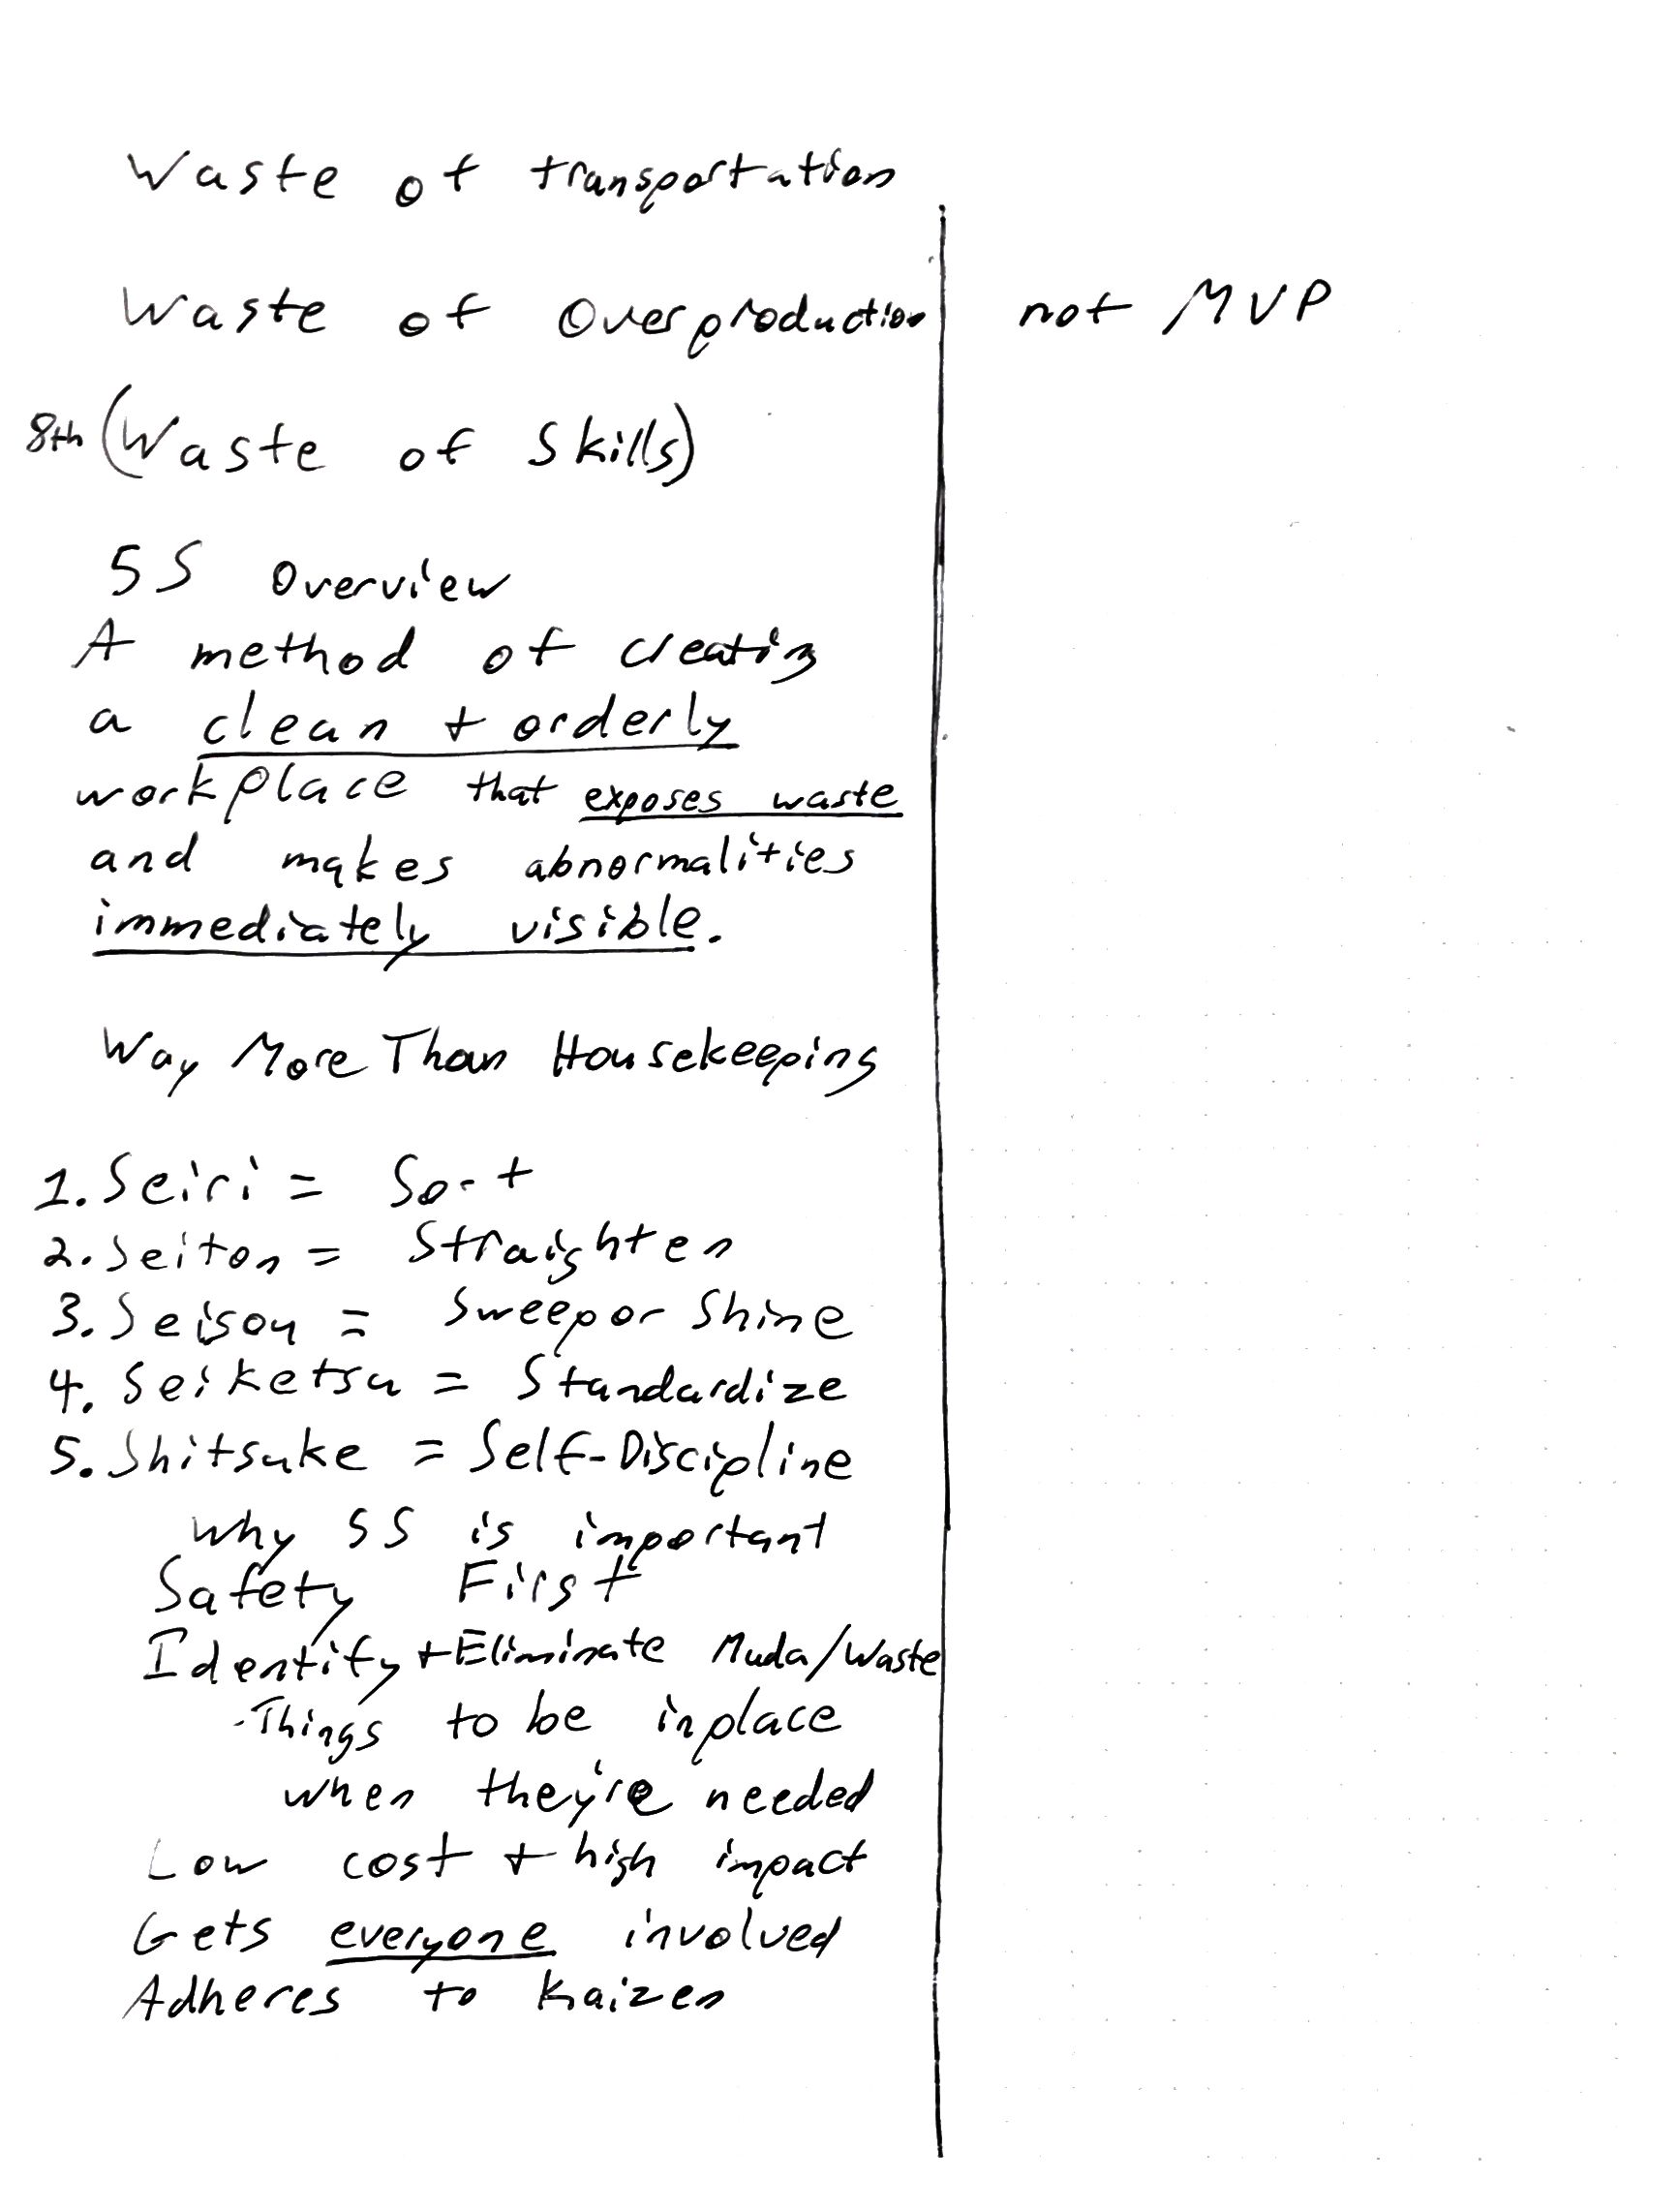 Waste of transportation
Waste of Overproduction not MVP
8th (Waste of Skills)
5S Overview
A method of creating
a clean + orderly
workplace that exposes waste
and makes abnormalities
immediately visible.
Way More Than Housekeeping
1. Seiri = Sort
2. Seiton = Straighten
3. Seisou = Sweep or Shine
4. Seiketsu = Standardize
5. Shitsuke = Self-Discipline
Why 5S is important
Safety First
Identify + Eliminate Muda/Waste
-Things to be inplace
when they're needed
Low cost + high impact
Gets everyone involved
Adheres to Kaizen